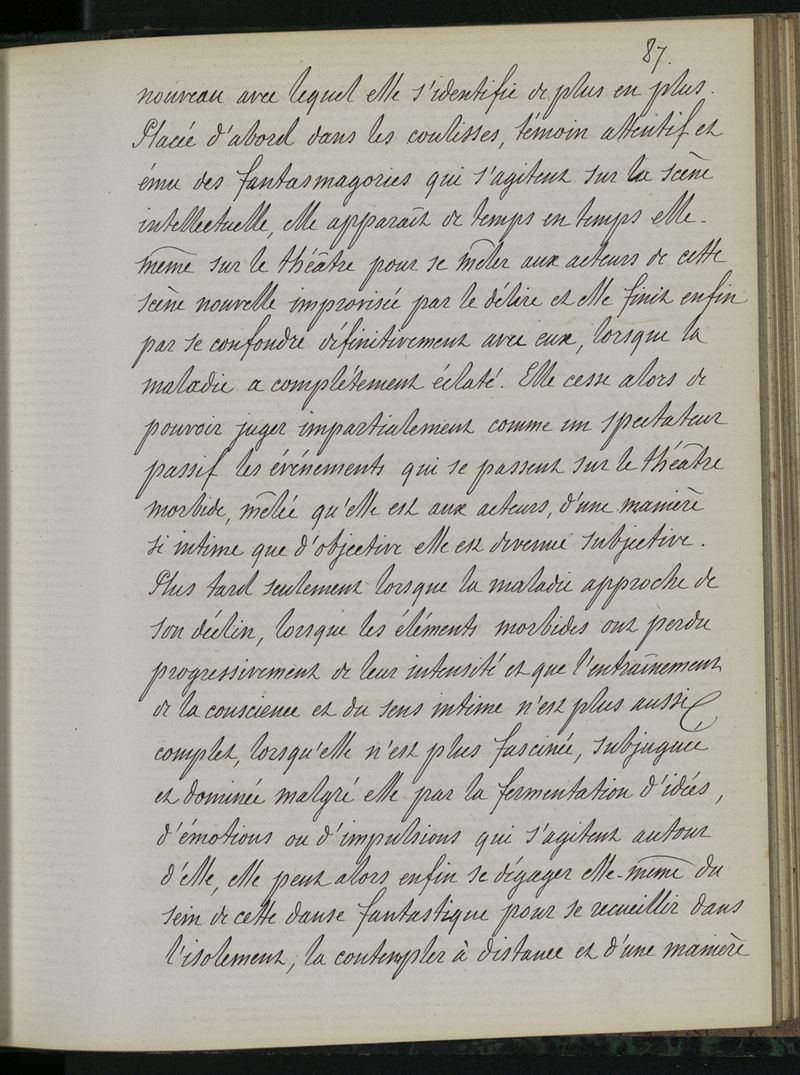 87.
nouveau avec lequel elle s'identifie de plus en plus.
Placée d'abord dans les coulisses, témoin attentif et
ému des fantasmagories qui s'agitent sur la scène
intellectuelle, elle apparaît de temps en temps elle-
même sur le théâtre pour se mêler aux acteurs de cette
scène nouvelle improvisée par le délire et elle finit enfin
par se confondre définitivement avec eux, lorsque la
maladie a complétement éclaté. Elle cesse alors de
pouvoir juger impartialement comme un spectateur
passif les événements qui se passent sur le théâtre
morbide, mêlée qu'elle est aux acteurs, d'une manière
si intime que d'objective elle est devenue subjective.
Plus tard seulement lorsque la maladie approche de
son déclin, lorsque les éléments morbides ont perdu
progressivement de leur intensité et que l'entraînement
de la conscience et du sens intime n'est plus aussi
complet, lorsqu'elle n'est plus fascinée, subjuguée
et dominée malgré elle par la fermentation d'idées,
d'émotions ou d'impulsions qui s'agitent autour
d'elle, elle peut alors enfin se dégager elle-même du
sein de cette danse fantastique pour se recueillir dans
l'isolement, la contempler à distance et d'une manière